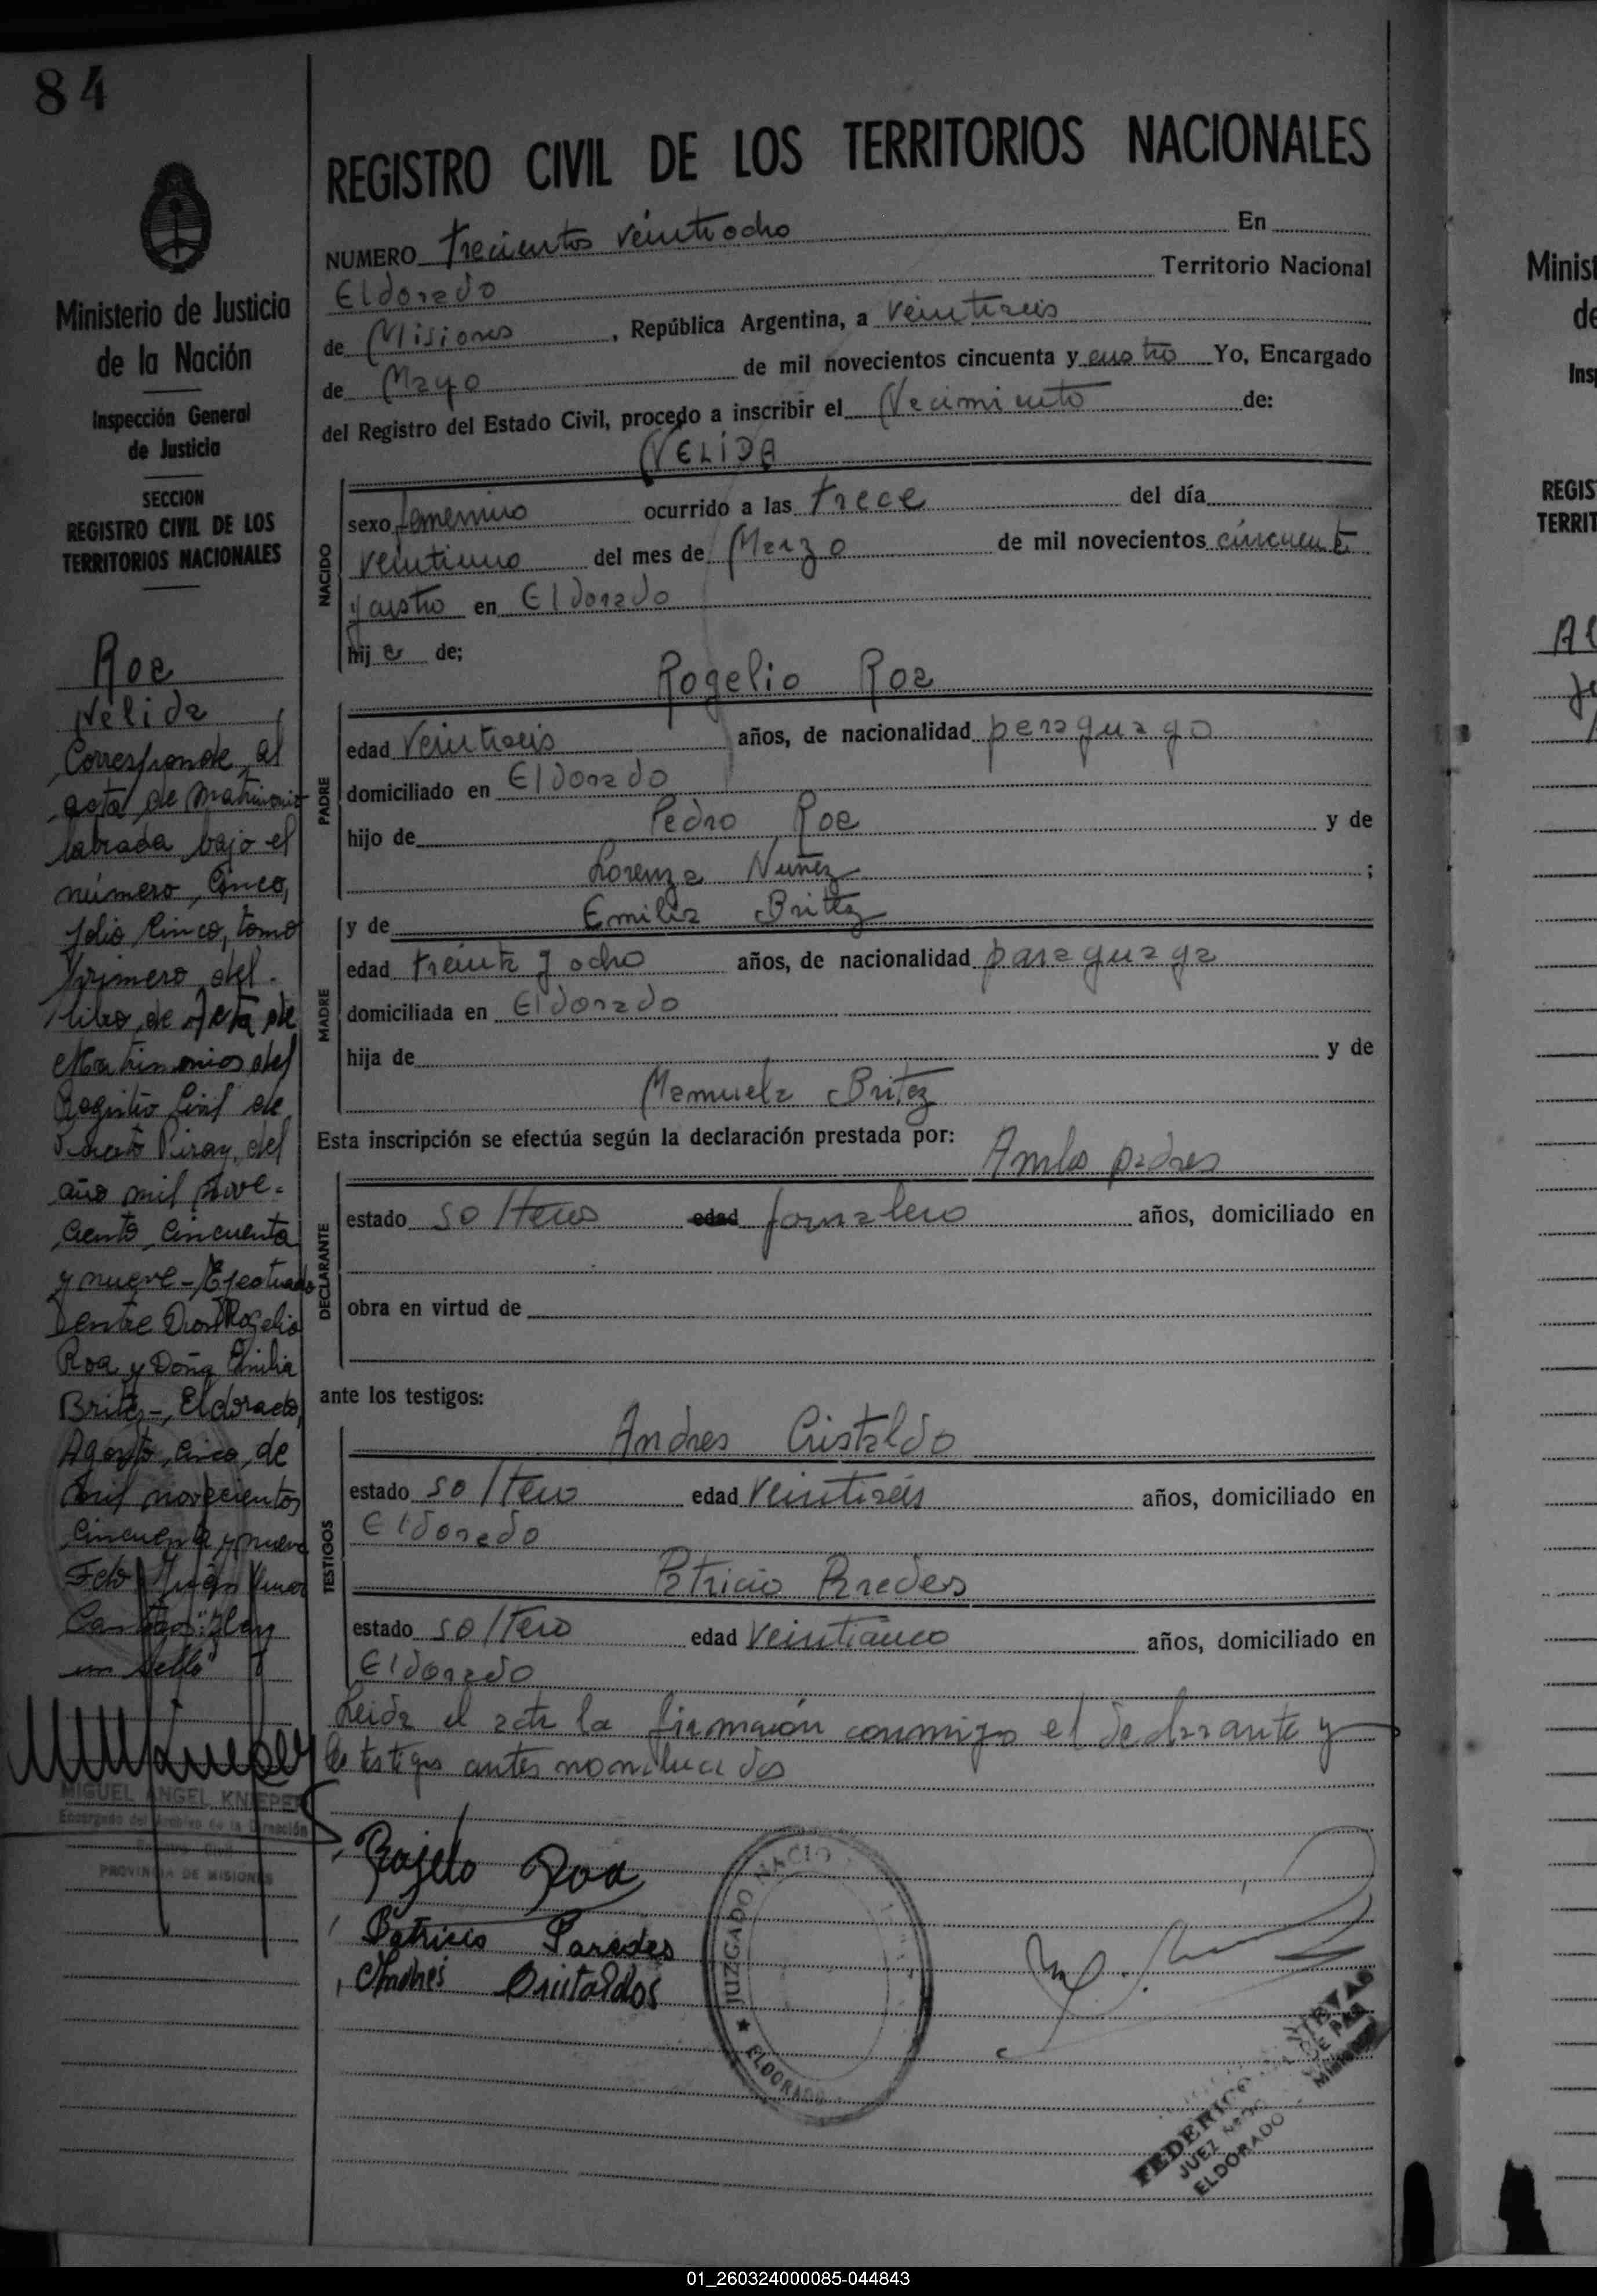 84
REGISTRO CIVIL DE LOS TERRITORIOS NACIONALES
Ministerio de Justicia
de la Nación
Inspección General
de Justicia
SECCION
REGISTRO CIVIL DE LOS
TERRITORIOS NACIONALES
Roa
Nélida
Corresponde al
acta de matrimonio
labrada bajo el
número Cinco,
folio Cinco, tomo
primero del
libro de Acta de
Matrimonios del
Registro Civil de
Puerto Piray, del
año mil nove-
ciento cincuenta
y nueve - Efectuado
Dentre Don Rogelio
Roa y Doña Emilia
Britez -, Eldorado,
Agosto, cinco, de
mil novecientos
cincuenta y nueve
Fdo Juan
"Hay
un sello"
MIGUEL ANGEL KNIEPER
Encargado del Archivo de la Dirección
Registro Civil
PROVINCIA DE MISIONES
NUMERO trecientos veintiocho En
Eldorado Territorio Nacional
de Misiones, República Argentina, a veintiseis
de Mayo de mil novecientos cincuenta y cuatro Yo, Encargado
del Registro del Estado Civil, procedo a inscribir el Necimiento de:
NELIDA
NACIDO
sexo femenino ocurrido a las trece del día
veintiuno del mes de Marzo de mil novecientos cincuenta
y cuatro en Eldorado
hija de;
Rogelio Roa
PADRE
edad veintiseis años, de nacionalidad peraguayo
domiciliado en Eldorado
hijo de Pedro Roa y de
Lorenza Nuñez ;
y de Emilia Brittez
MADRE
edad treinta y ocho años, de nacionalidad paraguaya
domiciliada en Eldorado
hija de y de
Manuela Britez
Esta inscripción se efectúa según la declaración prestada por: Ambos padres
DECLARANTE
estado solteros edad jornalero años, domiciliado en
obra en virtud de
ante los testigos:
TESTIGOS
Andres Cristaldo
estado soltero edad veintiseis años, domiciliado en
Eldorado
Patricio Paredes
estado soltero edad veinticinco años, domiciliado en
Eldorado
Leida el acta la firmaron conmigo el declarante y
los testigos antes nombrados
Rojelio Roa
Patricio Paredes
Andres Cristaldos
JUZGADO NACIO
★ ELDORADO
FEDERICO
JUEZ DE PAZ
ELDORADO
Minist
de
Ins
REGIS
TERRIT
01_260324000085-044843